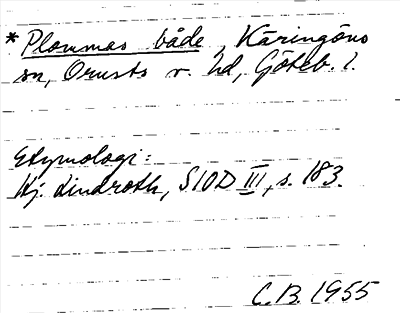 * Plommas både, Käringöns
sn, Orusts v. hd, Göteb. l.
Etymologi:
Hj. Lindroth, SIOD III, s. 183.
C.B. 1955